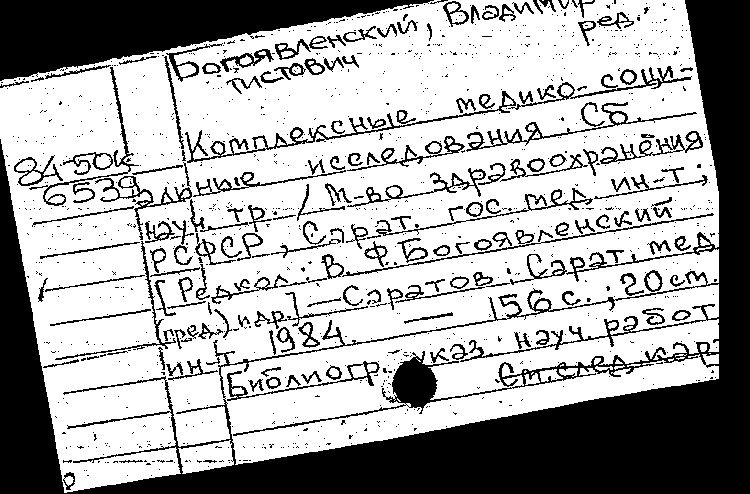 Богоявленский, Владимир
тистович ред.
Комплексные медико-соци-
84-50к
6539
альные исследования : Сб.
науч. тр. / М-во здравоохранения
РСФСР, Сарат. гос. мед. ин-т;
[Редкол.: В. Ф. Богоявленский
(пред.) и др.] — Саратов : Сарат. мед.
ин-т, 1984. — 156 с. ; 20 см.
Библиогр. указ. науч. работ
См. след. кар